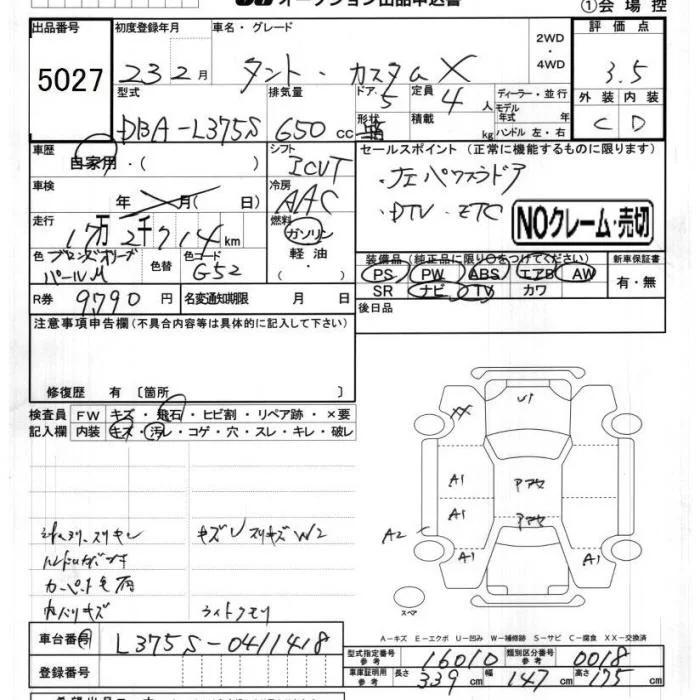 オークション出品申込書
①会場控
出品番号 5027
初度登録年月 23 2月
車名・グレード タント・カスタムX
2WD・4WD
評価点 3.5
型式 DBA-L375S
排気量 650cc
ドア 5
形状
定員 4人
積載 kg
ディーラー・並行
モデル年式 年
ハンドル 左・右
外装 C 内装 D
車歴 自家用・( )
シフト ICVT
セールスポイント (正常に機能するものに限ります)
・左パワスラドア
・DTV・ETC
NOクレーム・売切
車検 年 月( 日)
冷房 AAC
走行 17万2千714km
燃料 ガソリン・軽油・( )
色 ブロンズオリーブパールM
色替
色コード G52
装備品(純正品に限り○をつけてください)
PS PW ABS エアB AW
SR ナビ TV カワ
新車保証書 有・無
R券 9790円
名変通知期限 月 日
後日品
注意事項申告欄(不具合内容等は具体的に記入して下さい)
修復歴 有〔箇所 〕
検査員記入欄
FW キズ・飛石・ヒビ割・リペア跡・×要
内装 キズ・汚レ・コゲ・穴・スレ・キレ・破レ
U1
XX
A1 アアセ
A1 アアセ
A2
A1 A1
スペア
キズUスリキズW2
内ハリキズ
ライトクモリ
A-キズ E-エクボ U-凹み W-補修跡 S-サビ C-腐食 XX-交換済
車台番号 L375S-0411418
型式指定番号 参考 16010
類別区分番号 参考 0018
登録番号
車庫証明用 参考 長さ 339cm 幅 147cm 高さ 175cm